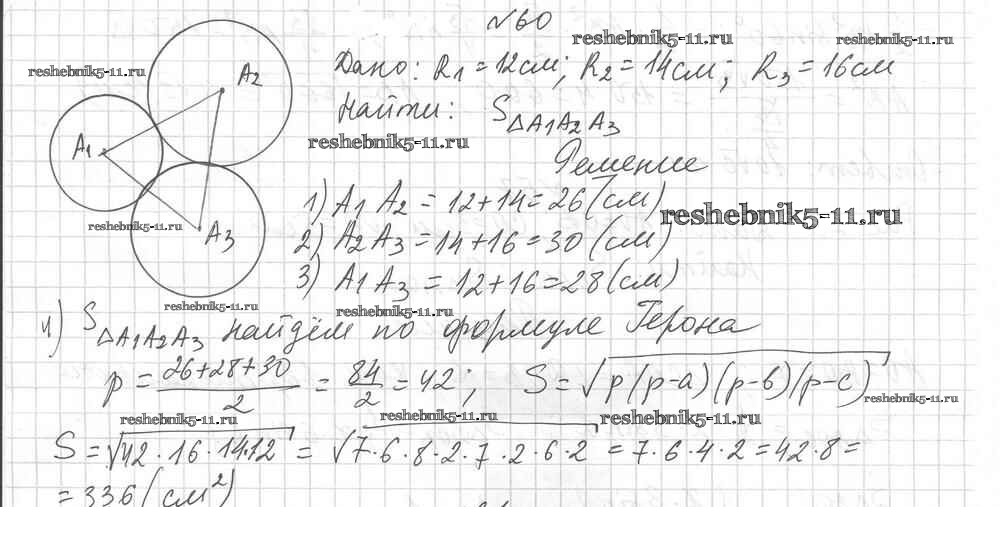 №60
reshebnik5-11.ru
reshebnik5-11.ru
reshebnik5-11.ru
A2
Дано: R1 = 12 см; R2 = 14 см; R3 = 16 см
Найти: S△A1A2A3
reshebnik5-11.ru
A1
Решение
1) A1 A2 = 12+14 = 26 (см)
reshebnik5-11.ru
reshebnik5-11.ru
A3
2) A2 A3 = 14+16 = 30 (см)
3) A1 A3 = 12+16 = 28 (см)
reshebnik5-11.ru
reshebnik5-11.ru
4) S△A1A2A3 найдём по формуле Герона
p = (26+28+30)/2 = 84/2 = 42; S = √(p(p-a)(p-b)(p-c))
reshebnik5-11.ru
reshebnik5-11.ru
reshebnik5-11.ru
reshebnik5-11.ru
S = √(42·16·14·12) = √(7·6·8·2·7·2·6·2) = 7·6·4·2 = 42·8 =
= 336 (см²)